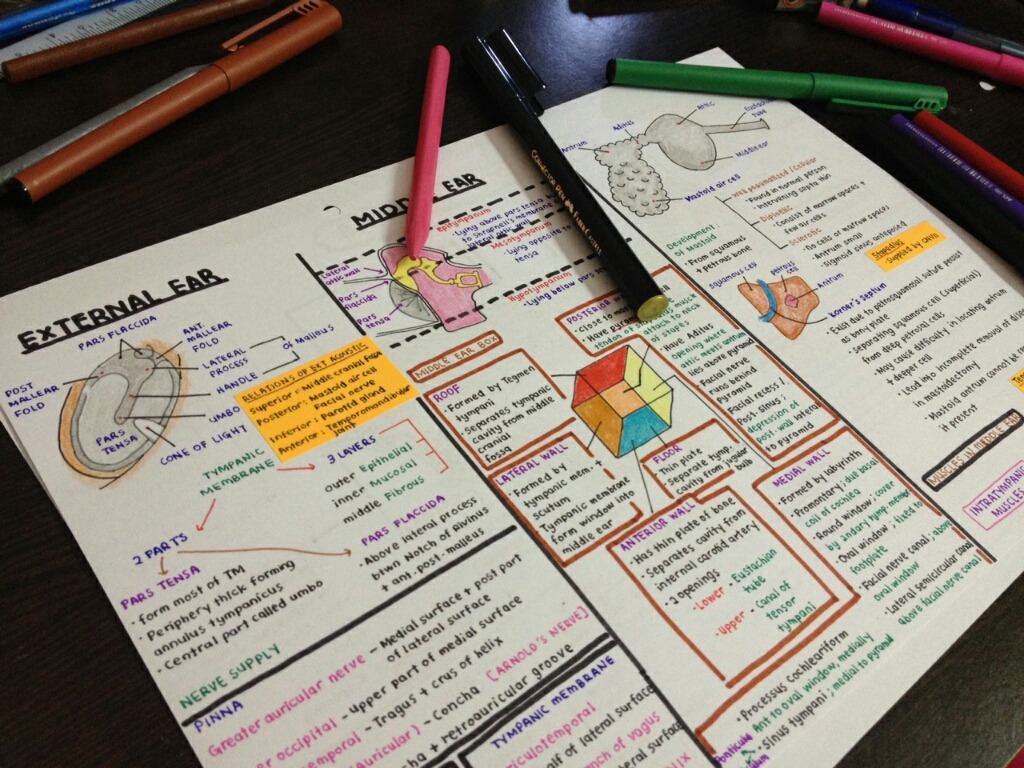 EXTERNAL EAR
PARS FLACCIDA
ANT.
MALLEAR
FOLD
LATERAL
PROCESS
of Malleus
HANDLE
POST
MALLEAR
FOLD
UMBO
CONE OF LIGHT
PARS
TENSA
RELATIONS OF EXT ACOUSTIC
Superior = Middle cranial fossa
Posterior = Mastoid air cell
Facial nerve
Inferior = Parotid gland
Anterior = Temporomandibular
joint
TYMPANIC
MEMBRANE
3 LAYERS
outer Epithelial
inner Mucosal
middle Fibrous
2 PARTS
PARS TENSA
- form most of TM
- Periphery thick forming
annulus tympanicus
- Central part called umbo
PARS FLACCIDA
- Above lateral process
btwn Notch of Rivinus
+ ant. post. malleus
NERVE SUPPLY
PINNA
Greater auricular nerve - Medial surface + post part
of lateral surface
occipital - upper part of medial surface
temporal - Tragus + crus of helix
auricular) - Concha [ARNOLD'S NERVE]
+ retroauricular groove
TYMPANIC MEMBRANE
half of lateral surface
branch of vagus
MIDDLE EAR
Epitympanum
- Lying above pars tensa
to Shrapnell's membrane
Mesotympanum
- Lying opposite to
tensa
Hypotympanum
- Lying below pars
Lateral
attic wall
Pars
flaccida
Pars
tensa
MIDDLE EAR BOX
ROOF
- Formed by Tegmen
tympani
- Separates tympanic
cavity from middle
cranial
fossa
LATERAL WALL
- Formed by
tympanic mem. +
scutum
- Tympanic membrane
form window into
middle ear
POSTERIOR
- Close to
- Have pyramid
tendon of
muscle
attach to neck
of stapes
- Have Aditus
opening where
attic meets antrum
lies above pyramid
- Facial nerve
runs behind
pyramid
- Facial recess /
Post. sinus:
depression of
post. wall lateral
to pyramid
FLOOR
- Thin plate
- Separate tymp.
cavity from jugular
bulb
ANTERIOR WALL
- Has thin plate of bone
- Separates cavity from
internal carotid artery
- 2 openings
- Lower - Eustachian
tube
- Upper - Canal of
tensor
tympani
MEDIAL WALL
- Formed by labyrinth
- Promontory: due basal
coil of cochlea
- Round window: cover
by 2ndary tymp. membr
- Oval window: fixed to
footplate
- Facial nerve canal: above
oval window
- Lateral semicircular canal
above facial nerve canal
- Processus cochleariform
Ant to oval window, medially
- Sinus tympani: medial to pyramid
Aditus
Antrum
Attic
Eustachian
tube
Middle ear
Mastoid air cell
Well pneumatized / Cellular
- Found in normal person
- Intervening septa thin
Diploetic
- Consist of marrow spaces +
few air cells
Sclerotic
- No cells or marrow spaces
- Antrum small
- Sigmoid sinus anteposed
Stapedius
- Supplied by CNVII
Development:
of Mastoid
- From squamous
+ petrous bone
squamous cell
petrous
cell
Antrum
Korner's septum
- Exist due to petrosquamosal suture persist
as bony plate
- Separating squamous cell (superficial)
from deep petrosal cells
- May cause difficulty in locating antrum
+ deeper cell
- Lead into incomplete removal of
in mastoidectomy
- Mastoid antrum cannot be
it present
MUSCLES IN MIDDLE EAR
INTRATYMPANIC
MUSCLES